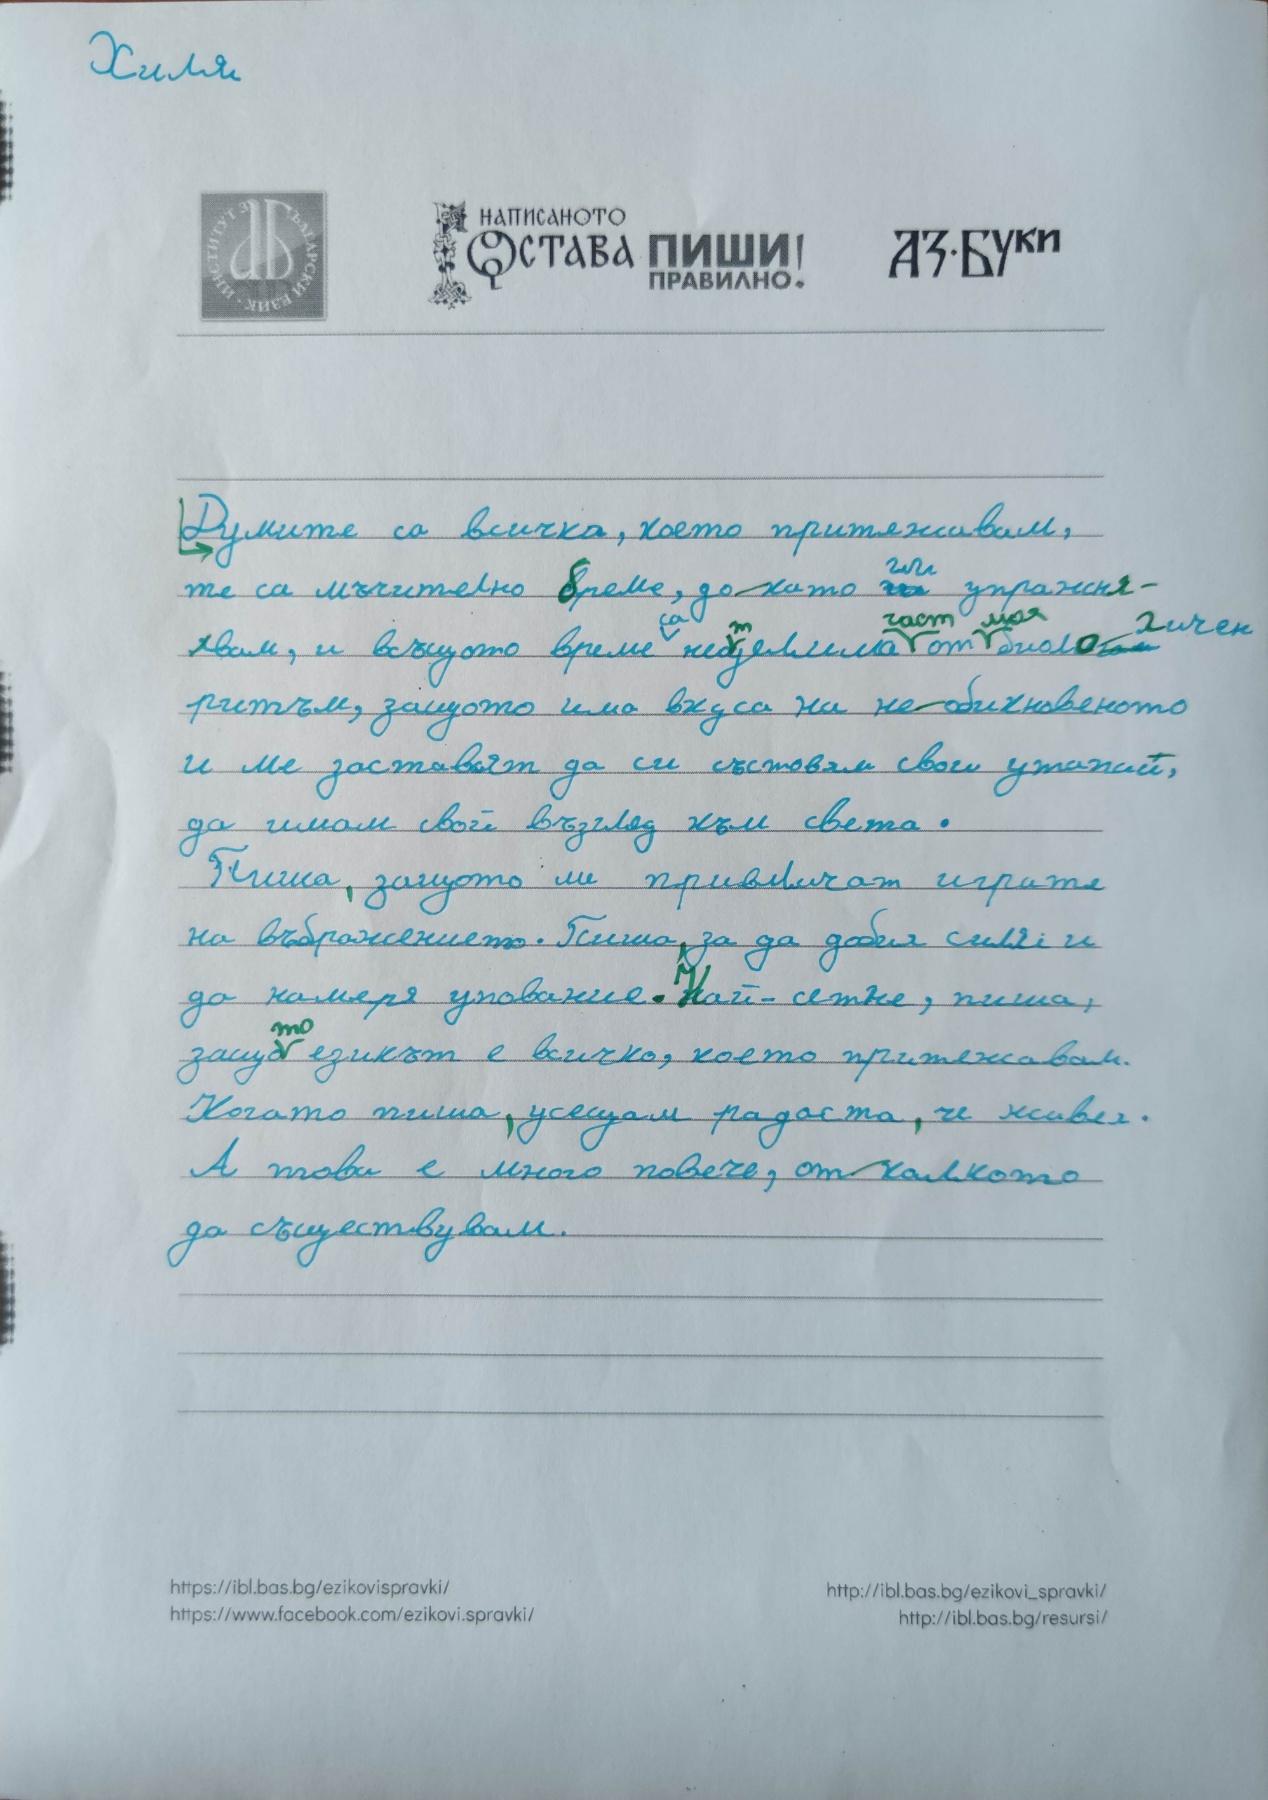 Хиля
ИНСТИТУТ ЗА БЪЛГАРСКИ ЕЗИК
НАПИСАНОТО
ОСТАВА ПИШИ
ПРАВИЛНО!
АЗ·БУКИ
Думите са всичко, което притежавам,
те са мъчително бреме, до като ги упражня-
явам, и всъщото време са неотделима част от моя биологичен
ритъм, защото има вкуса на не обикновеното
и ме заставят да си състовям свои утапии,
да имам свой възгляд към света.
Пиша, защото ми привличат играте
на въбражението. Пиша, за да добия сили и
да намеря упование. Най-сетне, пиша,
защото езикът е всичко, което притежавам.
Когато пиша, усещам радоста, че живея.
А това е много повече, от колкото
да съществувам.
https://ibl.bas.bg/ezikovispravki/
https://www.facebook.com/ezikovi.spravki/
http://ibl.bas.bg/ezikovi_spravki/
http://ibl.bas.bg/resursi/